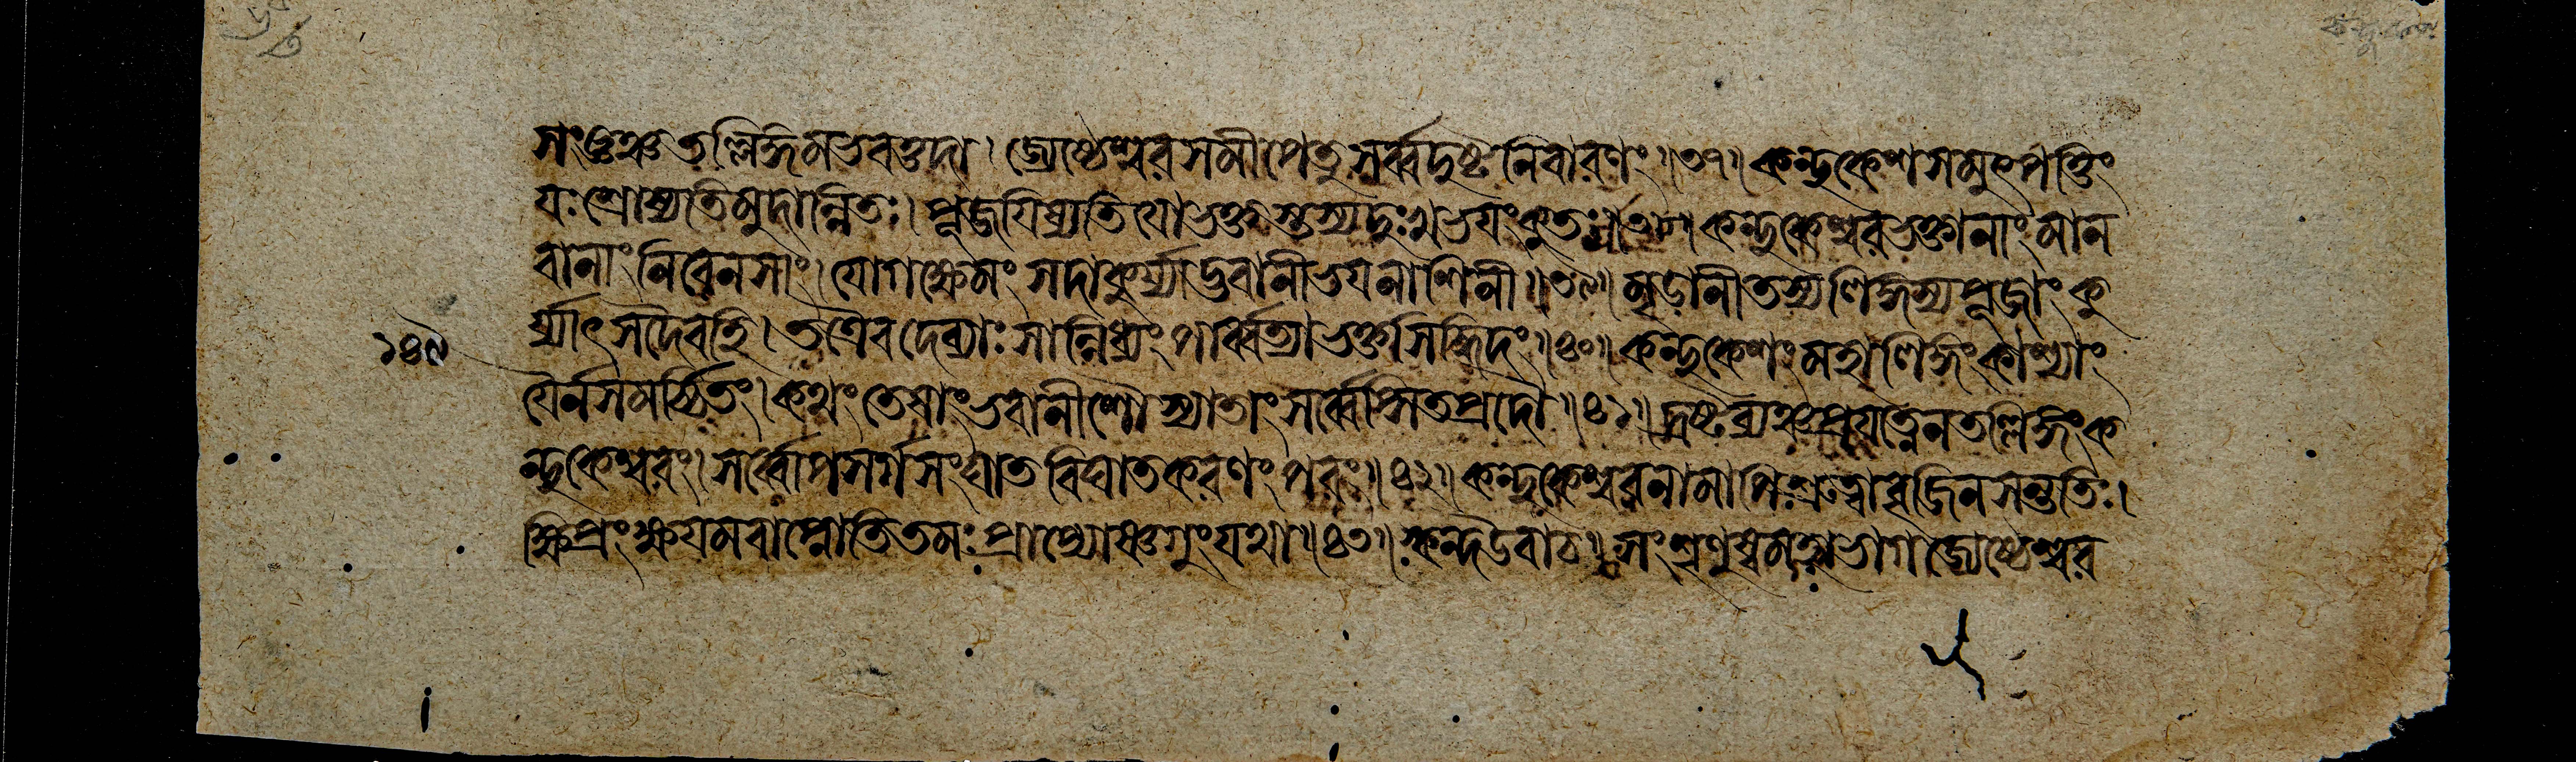 সংধুঞ্চ তল্লিঙ্গমভবত্তদা। জ্যেষ্ঠেশ্বরসমীপেতু সর্ব্বদুষ্টনিবারণং॥৩৭॥ কন্দুকেশসমুৎপত্তিং
যঃ শ্রোষ্যতিমুদান্বিতঃ। পূজযিষ্যতিযোভক্তস্তস্যদুঃখভযংকুতঃ॥৩৮॥ কন্দুকেশ্বরভক্তানাং মান
বানাং নিরেনসাং। যোগক্ষেমং সদাকুর্য্যাদ্ভবানীভযনাশিনী॥৩৯॥ মৃডানীতস্যলিঙ্গস্যপূজাং কু
র্য্যাৎ সদৈবহি। তত্রৈবদেব্যাঃ সান্নিধ্যং পার্ব্বত্যাভক্তসিদ্ধিদং॥৪০॥ কন্দুকেশংমহালিঙ্গংকাশ্যাং
যৈর্নসমর্চ্চিতং। কথং তেষাংভবানীশৌস্যাতাংসর্ব্বেপ্সিতপ্রদৌ॥৪১॥ দ্রষ্টব্যঞ্চপ্রযত্নেনতল্লিঙ্গংক
ন্দুকেশ্বরং। সর্ব্বোপসর্গসংঘাতবিঘাতকরণংপরং॥৪২॥ কন্দুকেশ্বরনামাপিশ্রুত্বাবৃজিনসন্ততিঃ।
ক্ষিপ্রংক্ষযমবাপ্নোতিতমঃ প্রাপ্যোষ্ণগুংযথা॥৪৩॥ স্কন্দউবাচ॥ সংশৃণুষ্বমহাভাগজ্যেষ্ঠেশ্বর
১৪৯